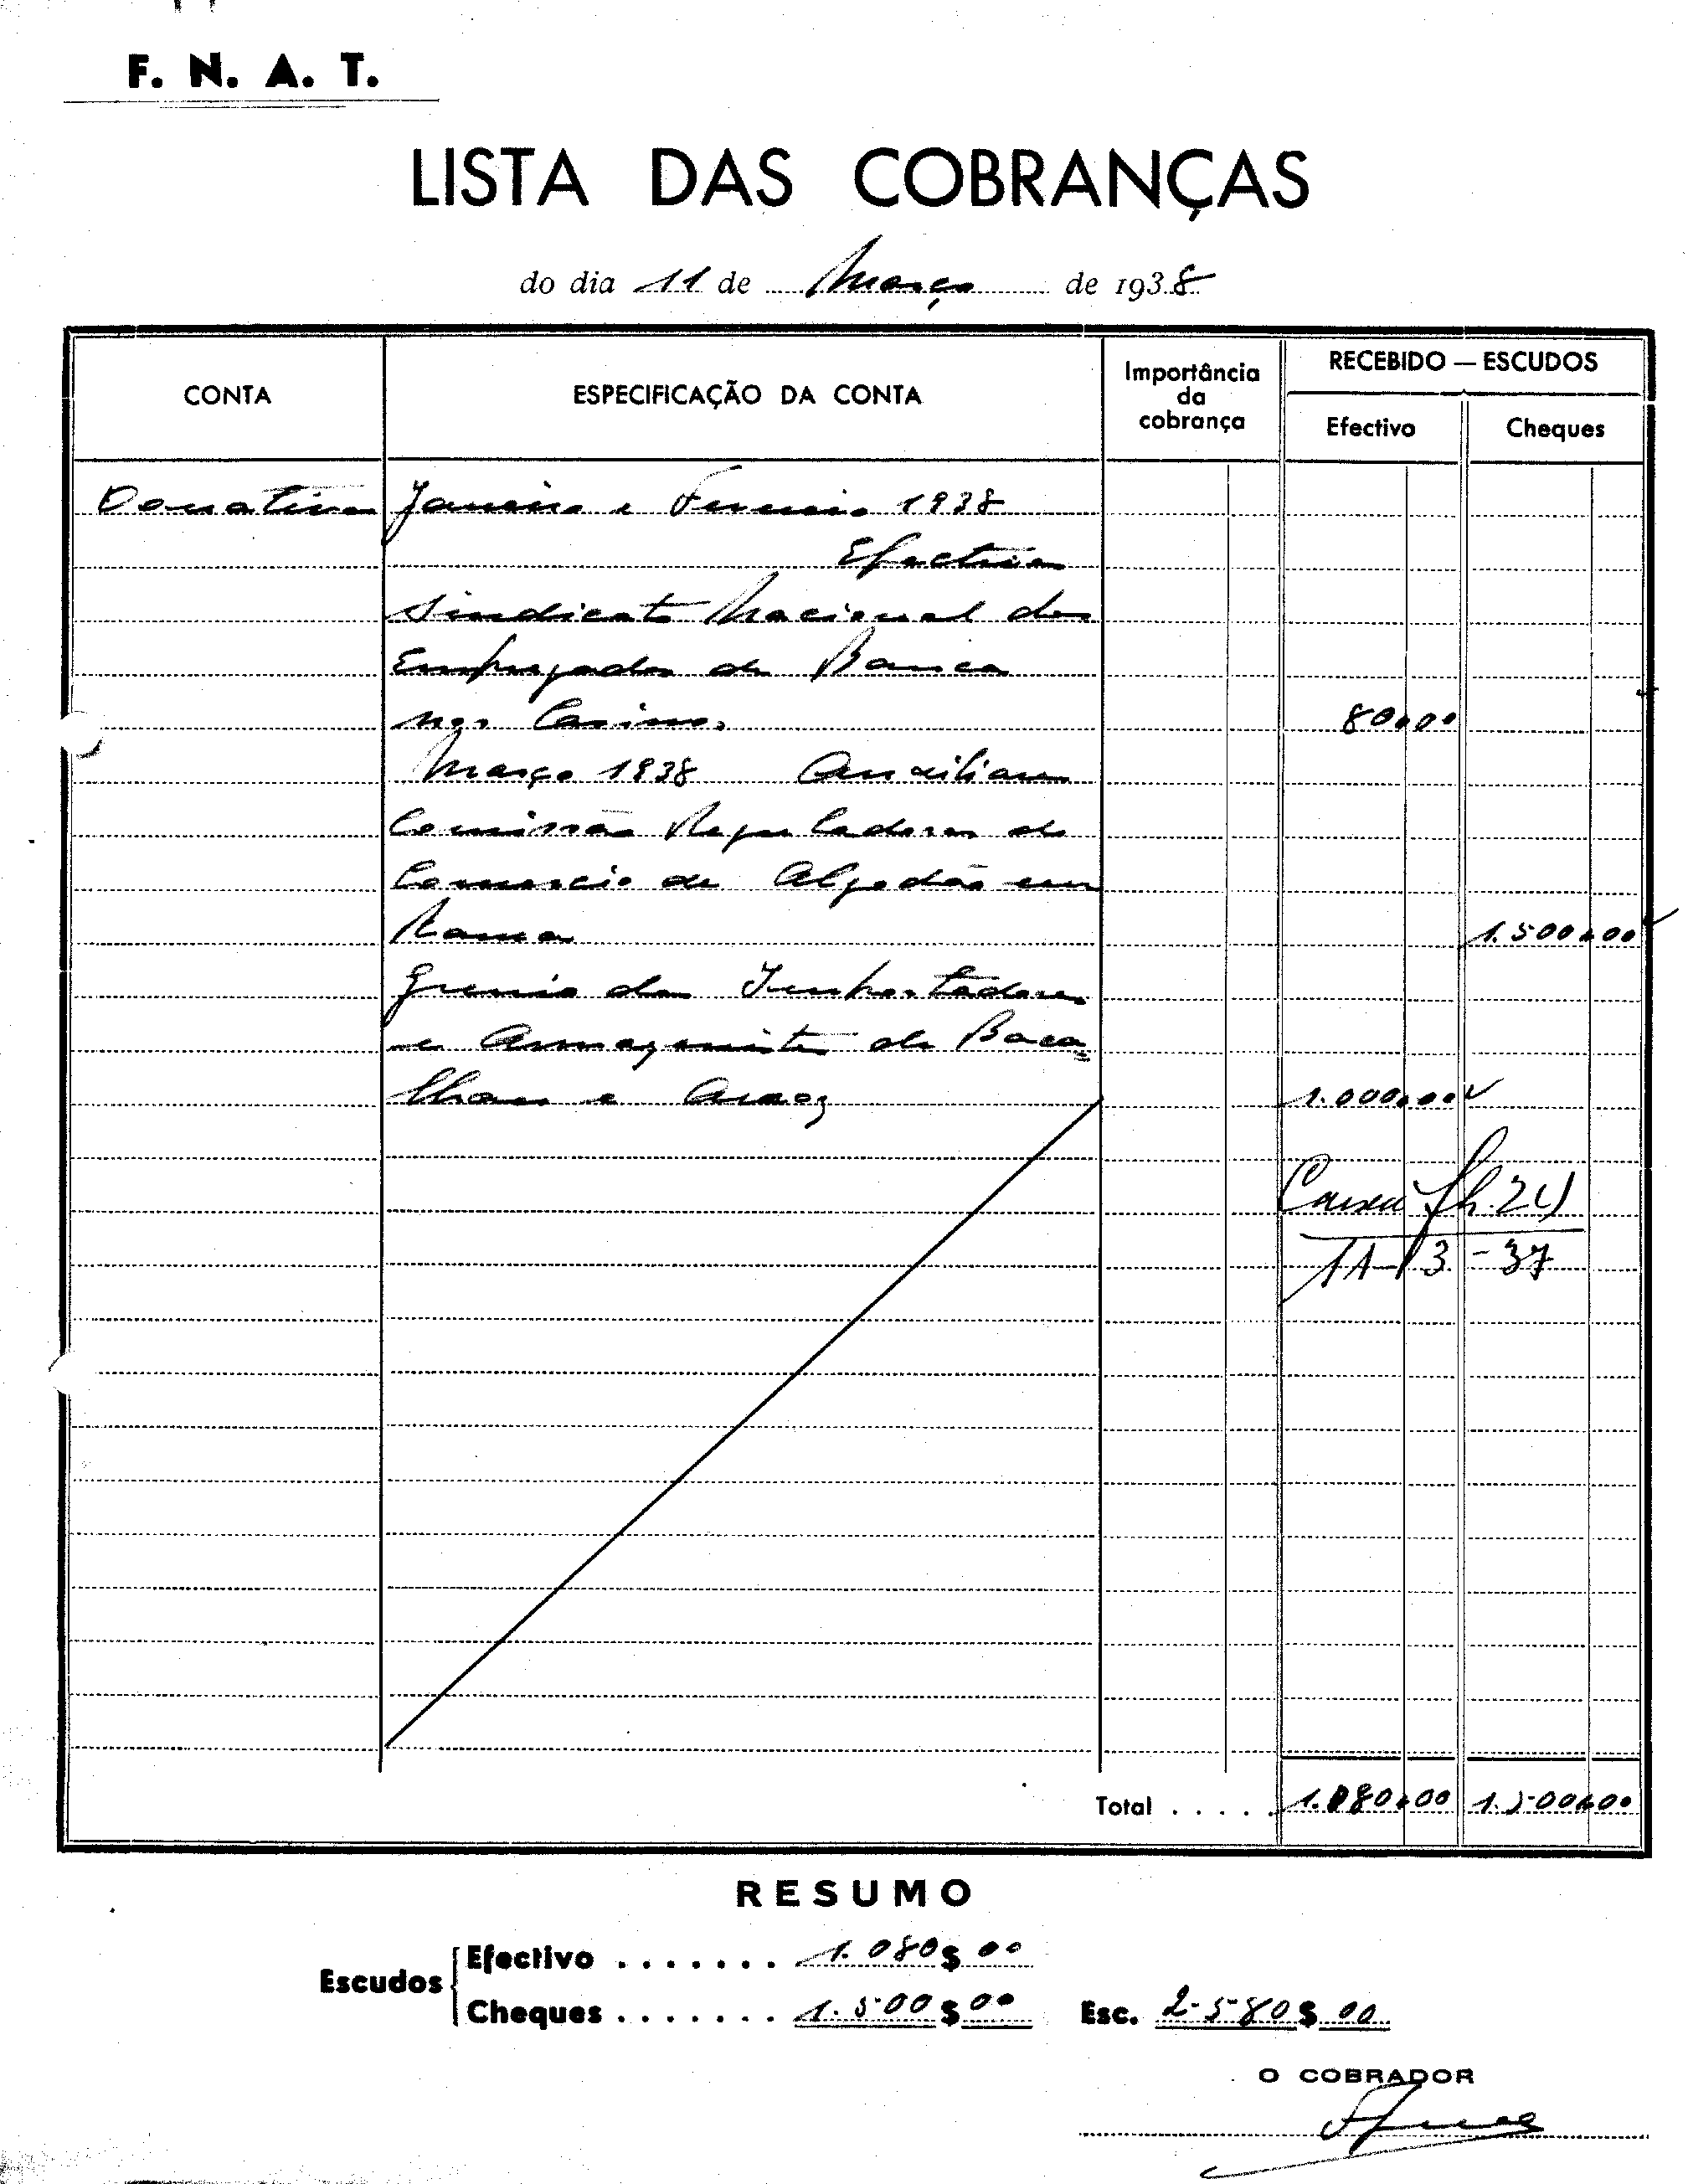 F. N. A. T.
LISTA DAS COBRANÇAS
do dia 11 de Março de 1938
CONTA
ESPECIFICAÇÃO DA CONTA
Importância da cobrança
RECEBIDO — ESCUDOS
Efectivo
Cheques
Donativos Janeiro e Fevereiro 1938
Efectivos
Sindicato Nacional dos
Empregados de Banca
nos Casinos 80.00
Março 1938 Auxiliares
Comissão Reguladora do
Comercio de Algodão em
Rama 1.500.00
Gremio dos Importadores
e Armazenistas de Baca
lhau e Arroz 1.000.00
Caixa fh. 24
11-3-37
Total . . . . . 1.080.00 1.500.00
RESUMO
Escudos
Efectivo . . . . . . . 1.080$00
Cheques . . . . . . . 1.500$00 Esc. 2.580$00
O COBRADOR